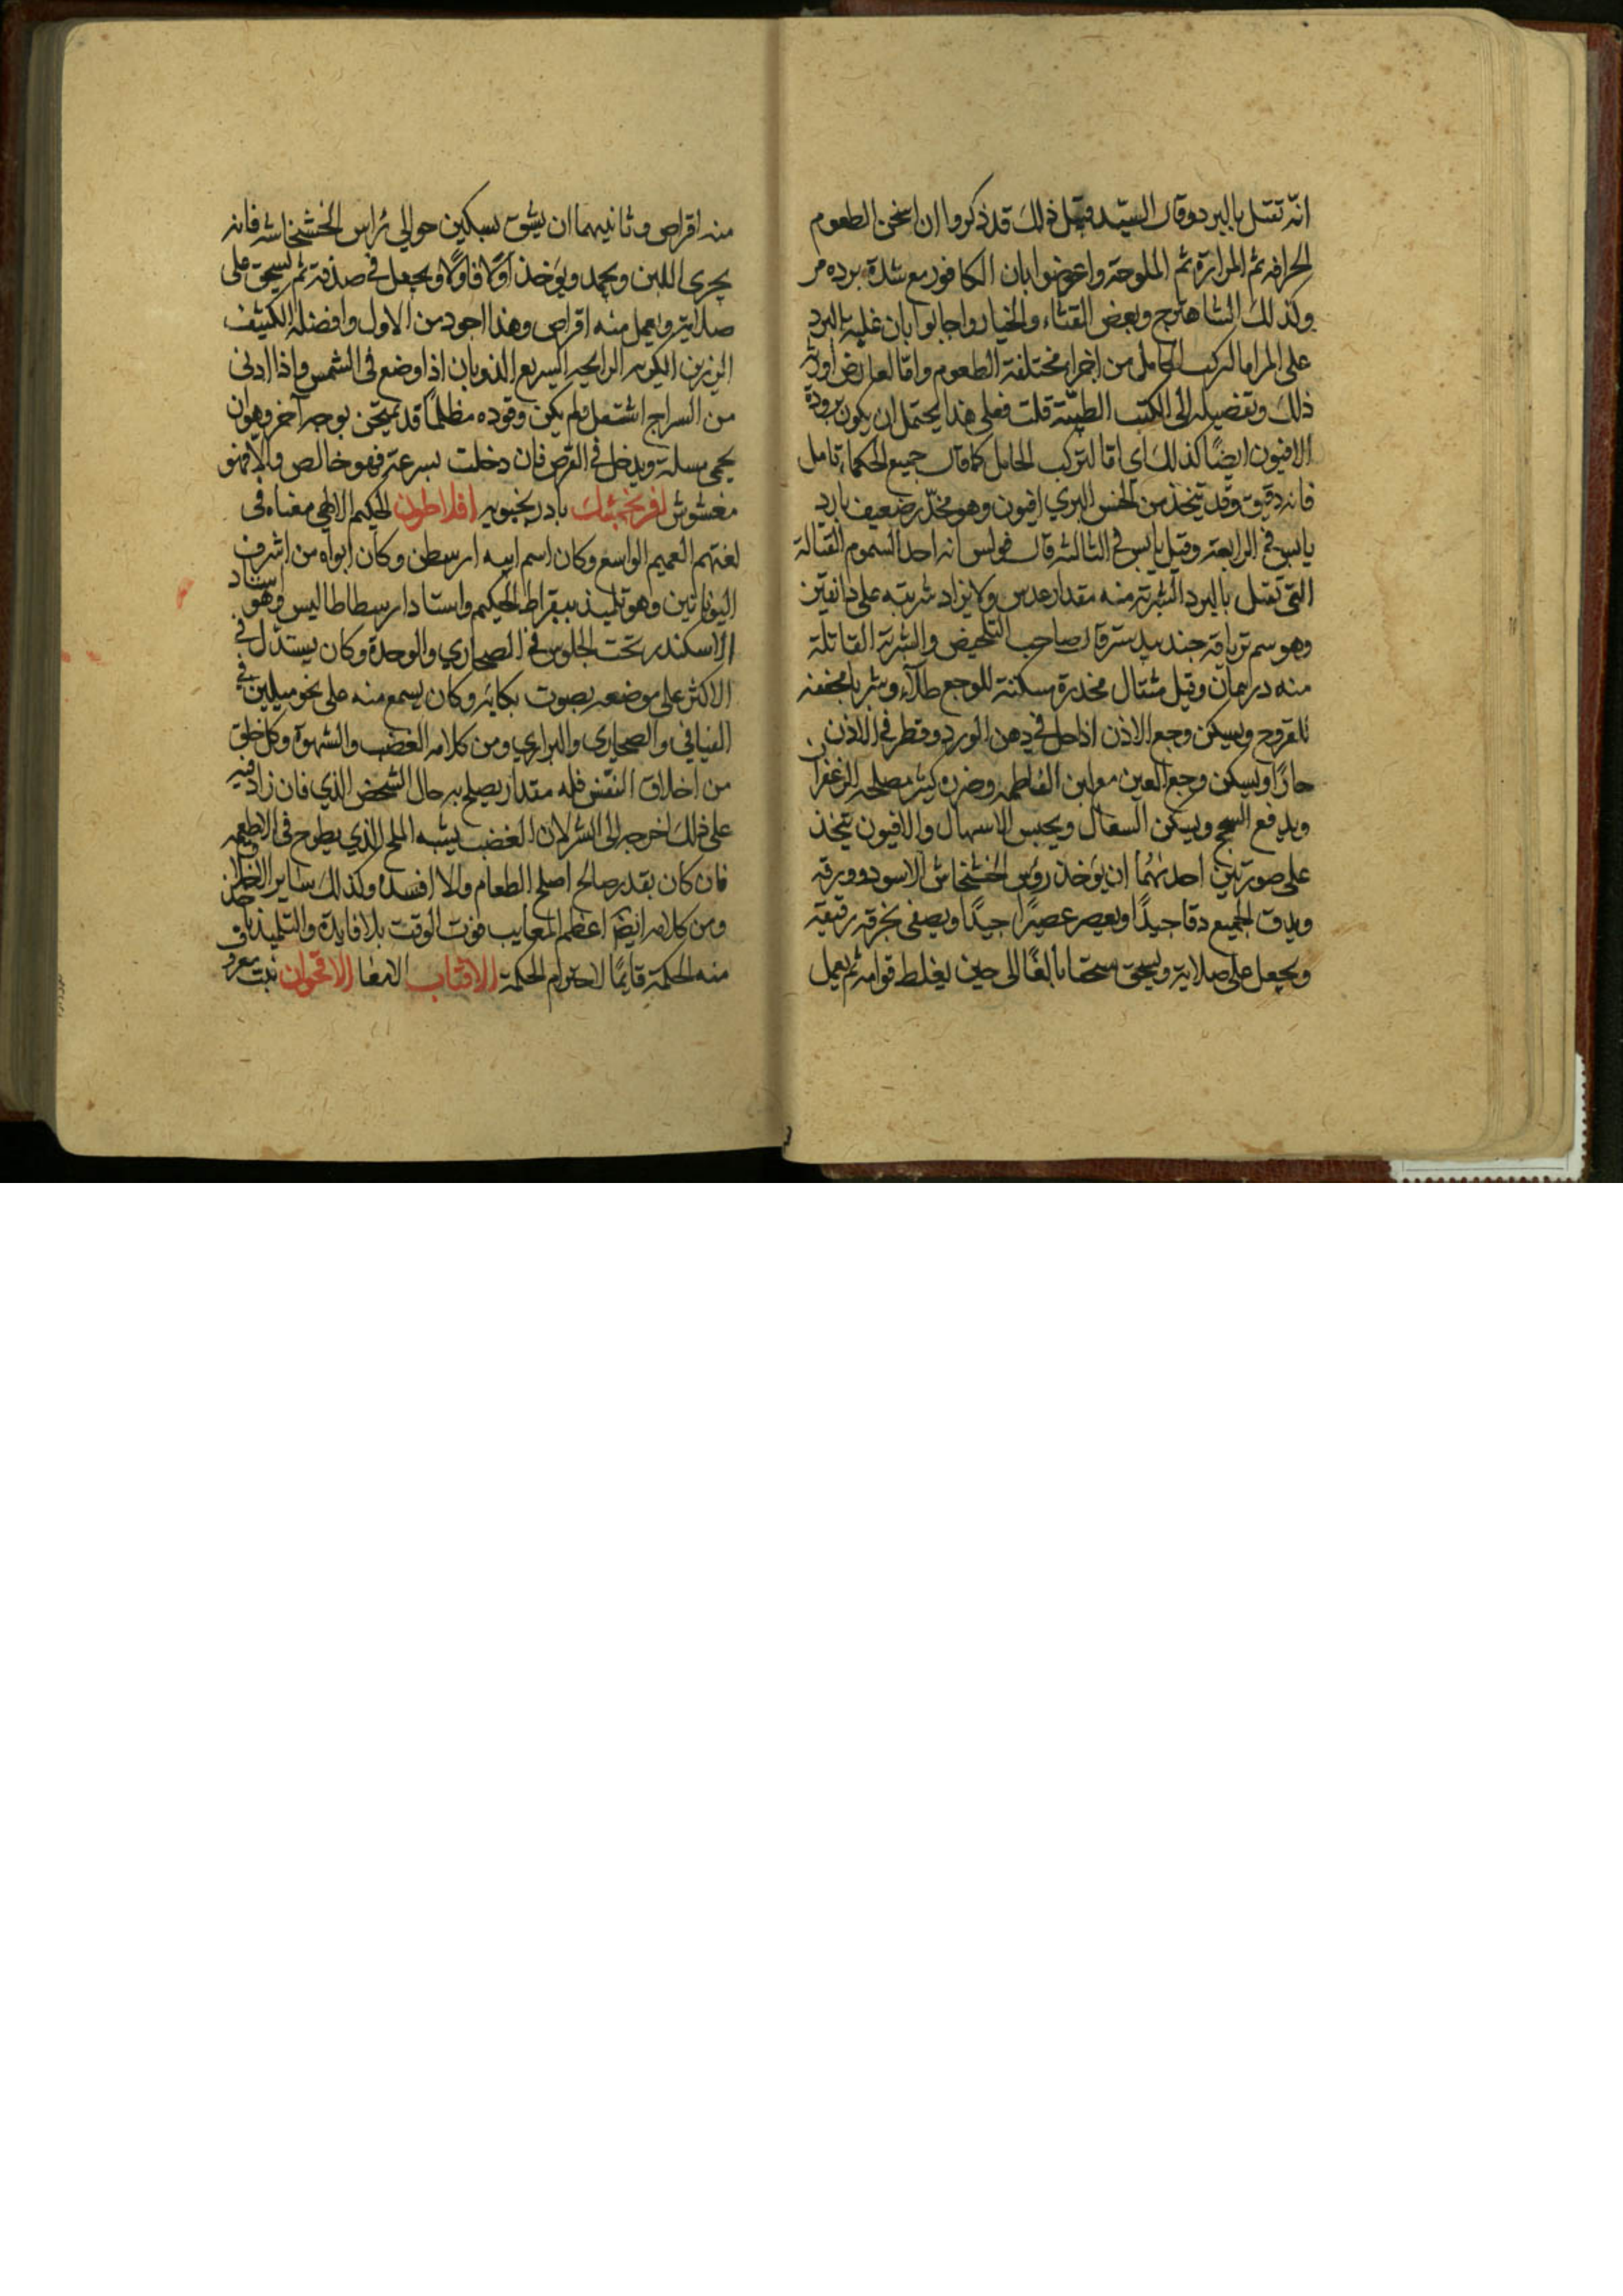 انّه تقتل بالبرد وقال السيّد قبل ذلك قد ذكروا ان اسخن الطعوم
الحرافه ثم المرارة ثم الملوحة واعترضوا بان الكافور مع شدة برده مر
وكذلك الشاهترج وبعض القثاء والخيار واجابوا بان غلبة البرد
على المر اما لتركب الحامل من اجزاء مختلفة الطعوم واما لعارض اورث
ذلك وتفصيله الى الكتب الطبّيّة قلت فعلى هذا يحتمل ان يكون برودة
الافيون ايضًا كذلك اي اما لتركب الحامل كما قال جميع الحكماء تامل
فانه دقيق وقد يتخذ من الخس البري افيون وهو مخدّر ضعيف بارد
يابس في الرابعة وقيل يابس في الثالثة قال فولس انه احد السموم القتالة
التي تقتل بالبرد الشربة منه مقدار عدس ولا يزاد شربته على دانقين
وهو سم ترياقه جندبيدستر قال صاحب التلخيص والشربة القاتلة
منه درهمان وقيل مثقال مخدرة مسكنة للوجع طلاء وشربا مجففه
للقروح ويسكن وجع الاذن اذا حل في دهن الورد وقطر في الاذن
حارًا ويسكن وجع العين مع لبن الفاطمه وضرره كثير مصلحه الزعفران
ويدفع السحج ويسكن السعال ويحبس الاسهال والافيون يتخذ
على صورتين احدٰهُما ان يؤخذ رؤس الخشخاش الاسود وورقه
ويدق الجميع دقا جيدًا ويعصر عصيرًا جيدًا ويصفى بخرقه رقيقة
ويجعل على صلاية ويسحق سحقا بالغًا الى حين يغلظ قوامه ثم يعمل
منه اقراص وثانيهما ان يشق بسكين حوالي رأس الخشخاشه فانه
يجري اللبن ويجمد ويؤخذ اوّلا فاوّلا ويجعل في صدفة ثم يسحق على
صلاية ويعمل منه اقراص وهذا اجود من الاول وافضله الكثيف
الرزين الكريه الرايحه السريع الذوبان اذا وضع في الشمس واذا ادنى
من السراج اشتعل ولم يكن وقوده مظلمًا قد يمتحن بوجه آخر وهو ان
يحمى مسلة ويدخل في القرص فان دخلت بسرعة فهو خالص والا فهو
مغشوش افرنجمشك بادرنجبويه افلاطون الحكيم الالهي معناه في
لغتهم العميم الواسع وكان اسم ابيه ارسطن وكان ابواه من اشرف
اليونانيين وهو تلميذ سقراط الحكيم واستاد ارسطاطاليس وهو استاد
الاسكندر تحت الجلوس في الصحاري والوحدة وكان يستدل في
الاكثر على موضعه بصوت بكائه وكان يسمع منه على نحو ميلين في
الفيافي والصحاري والبراري ومن كلامه الغضب والشهوة وكل خلق
من اخلاق النفس فله مقدار يصلح به حال الشخص الذي فان زاد فيه
على ذلك اخرجه الى الشر لان الغضب يشبه الملح الذي يطرح في الاطعمه
فان كان بقدر صالح اصلح الطعام والا افسده وكذلك ساير الخلائق
ومن كلامه ايضًا اعظم المعايب فوت الوقت بلا فايدة والتلميذ ياخذ
منه الحكمة قايمًا لاحترام الحكمة الاقتاب الامعا الاقحوان نبت معروف